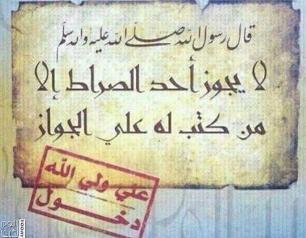 قال رسول الله صلى الله عليه واله وسلم
لا يجوز أحد الصراط إلا
من كتب له علي الجواز
علي ولي الله
دخول